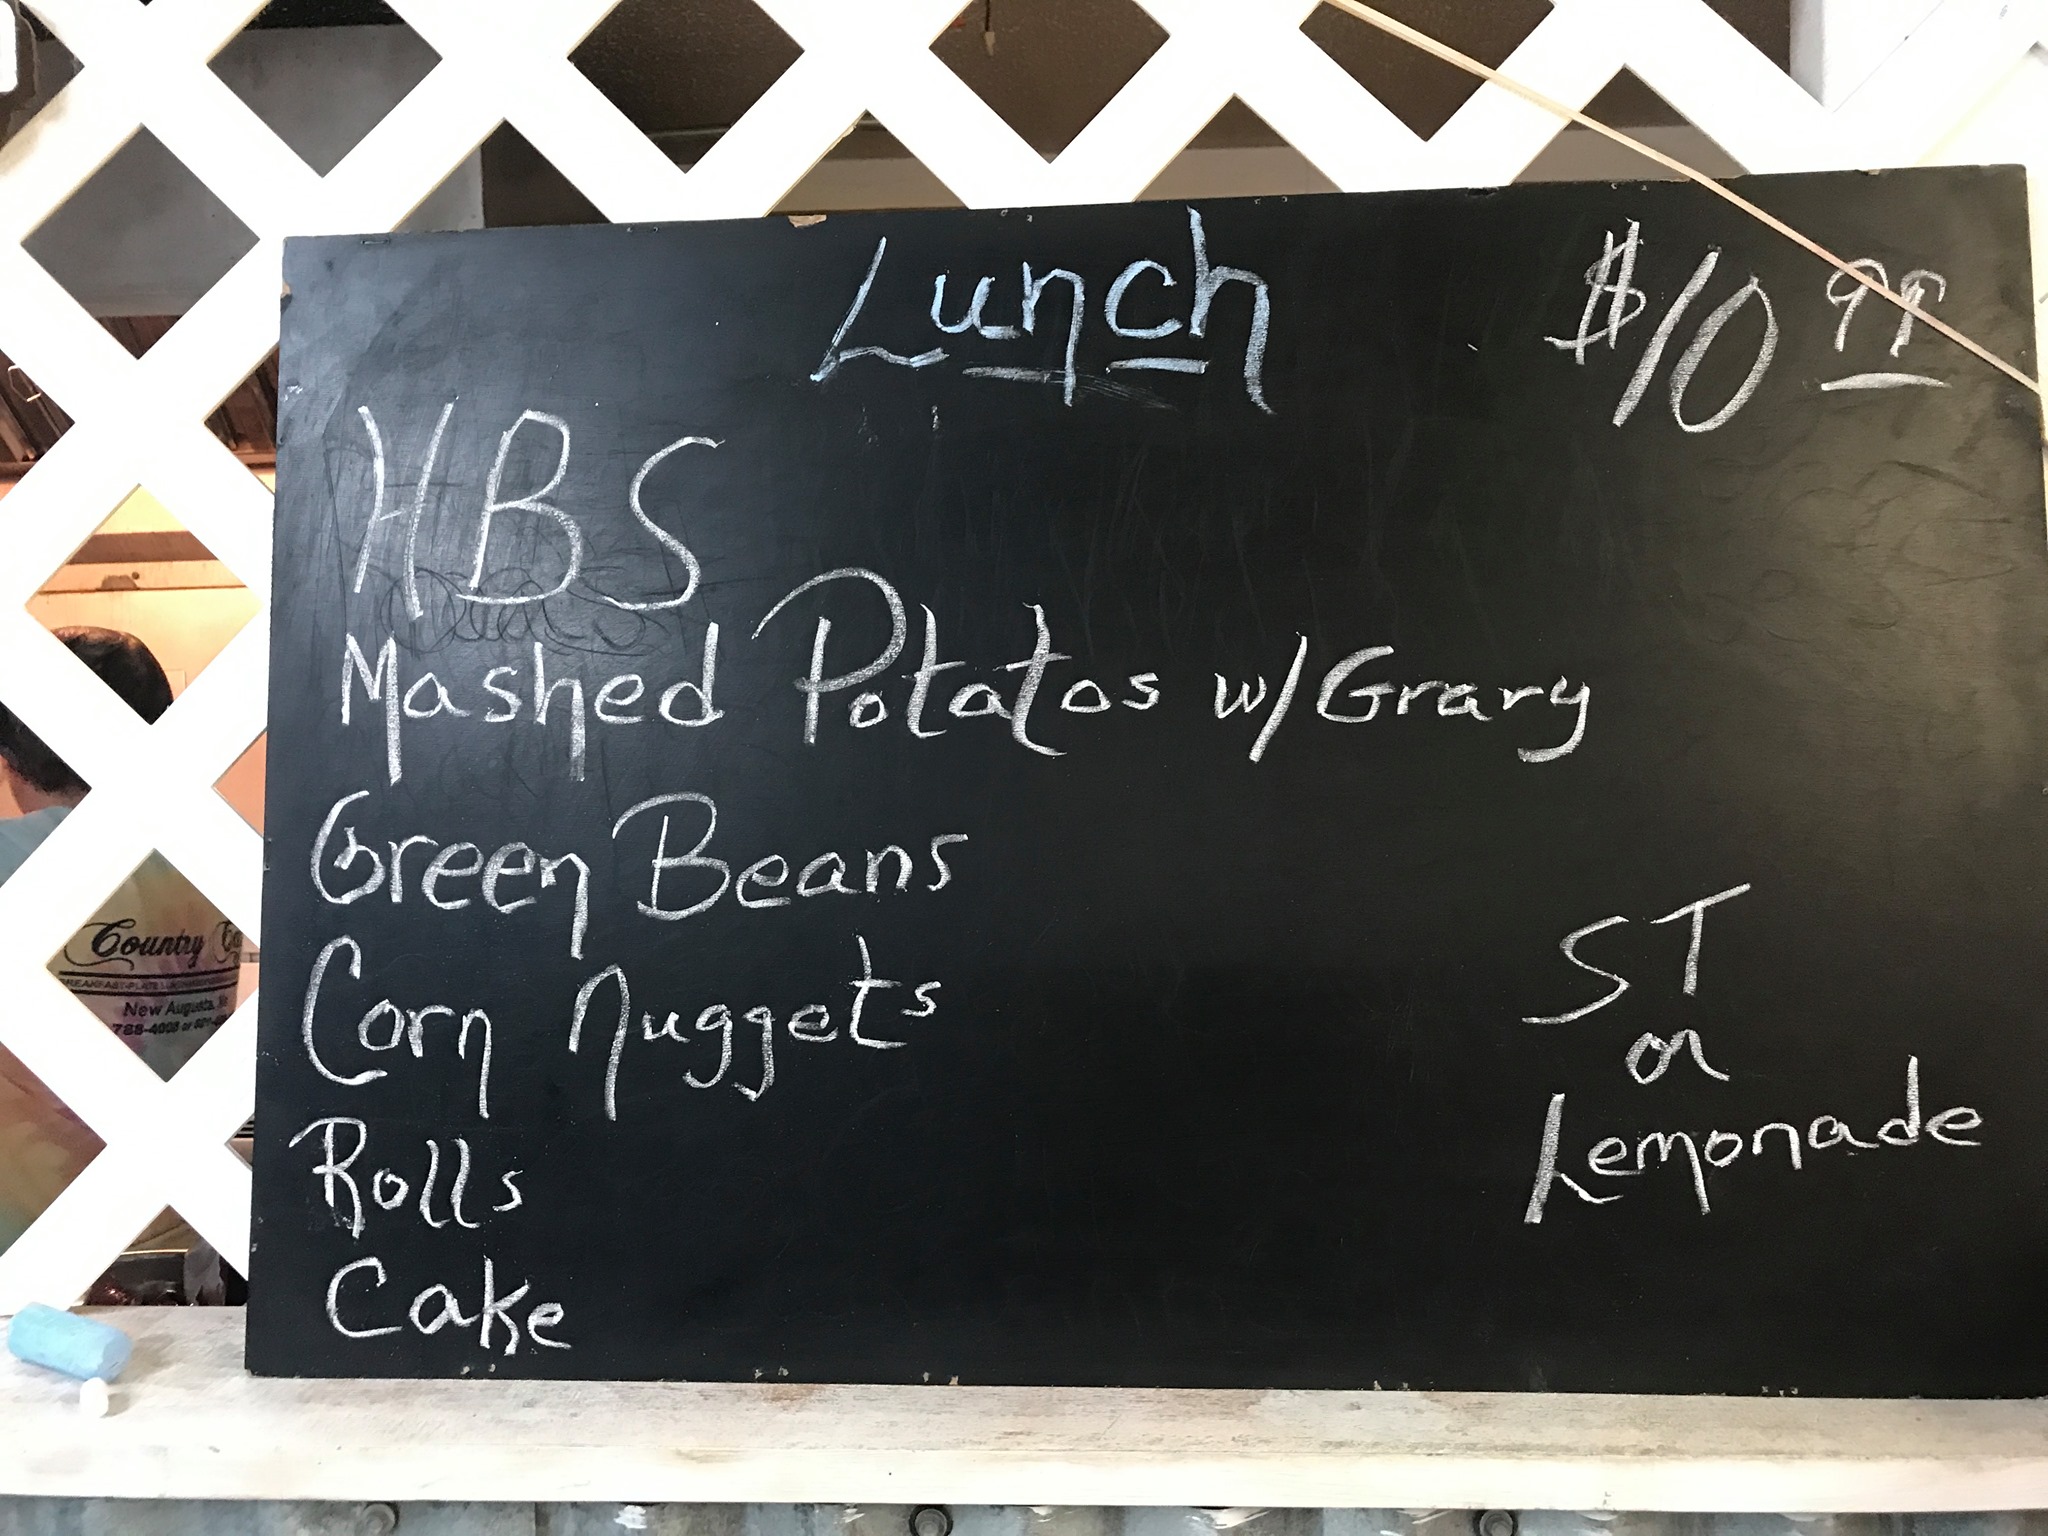 Lunch $10 99
HBS
Mashed Potatos w/Gravy
Green Beans
Corn Nuggets
Rolls
Cake
ST
or
Lemonade
Country
New Augusta,